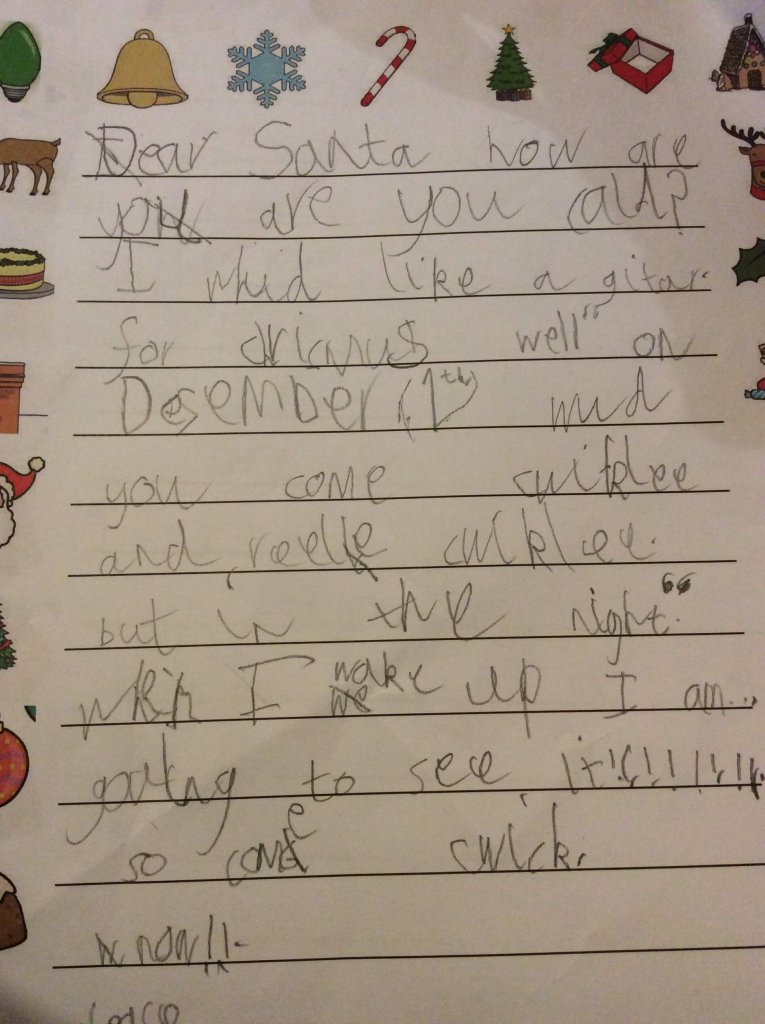 Dear Santa how are
you are you cald?
I wud like a gitar.
for crismus well" on
Desember (1th) wud
you come cwiklee
and reelle cwiklee.
but in the night."
when I wake up I am...
going to see it!!!!!!!!
so come cwick.
know!!.